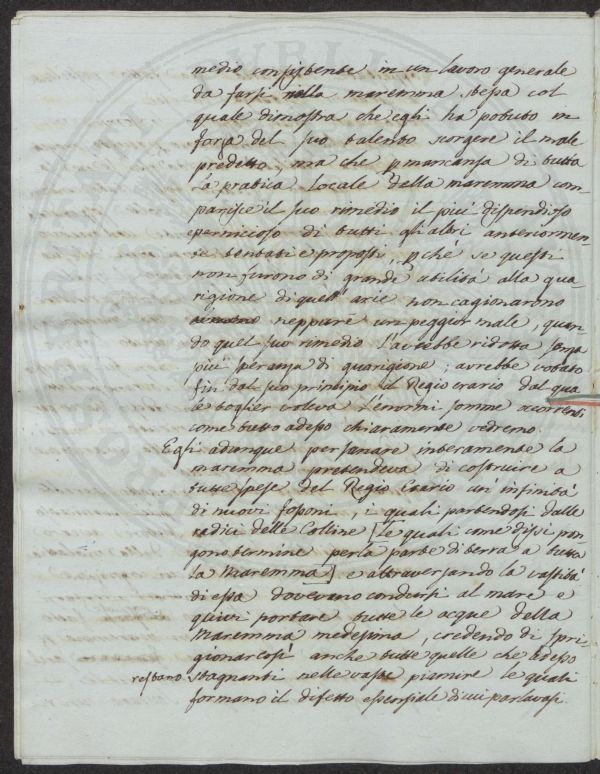 medio consistente in un lavoro generale
da farsi nella maremma stessa col
quale dimostra che egli ha potuto in
forza del suo talento scorgere il male
predetto, ma che p mancanza di tutta
la pratica locale della maremma com-
parisce il suo rimedio il più dispendioso
e pernicioso di tutti gli altri anteriormen-
te tentati e proposti, pchè se questi
non furono di grande utilità alla gua-
rigione di quell' arie non cagionarono
neppure un peggior male, quan-
do quel suo rimedio l'avrebbe ridotta senza
più speranza di guarigione; avrebbe votato
fin dal suo principio il Regio erario dal qua
le toglier voleva l'enormi somme occorrenti
come tutto adesso chiaramente vedremo.
Egli adunque per sanare interamente la
maremma pretendeva di costruire a
tutte spese del Regio Erario un' infinità
di nuovi fossoni, i quali partendosi dalle
radici delle Colline [Le quali come dissi pon
gono termine per la parte di terra a tutta
la Maremma] e attraversando la vastità
di essa dovevano condursi al mare e
quivi portare tutte le acque della
maremma medesima, credendo di spri-
gionar così anche tutte quelle che adesso
restano stagnanti nelle vaste pianure le quali
formano il difetto essenziale di cui parlavasi.